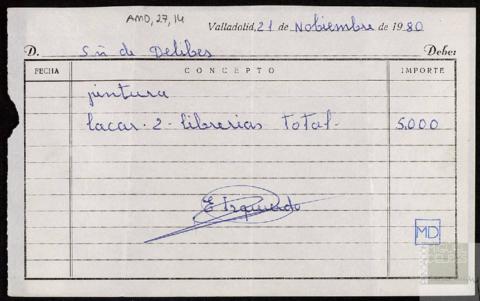 AMD, 27, 14
Valladolid, 21 de Nobiembre de 1980
D. Sñ de Delibes Debe:
FECHA CONCEPTO IMPORTE
pintura
lacar - 2 - librerias total - 5.000
E Izquierdo
MD